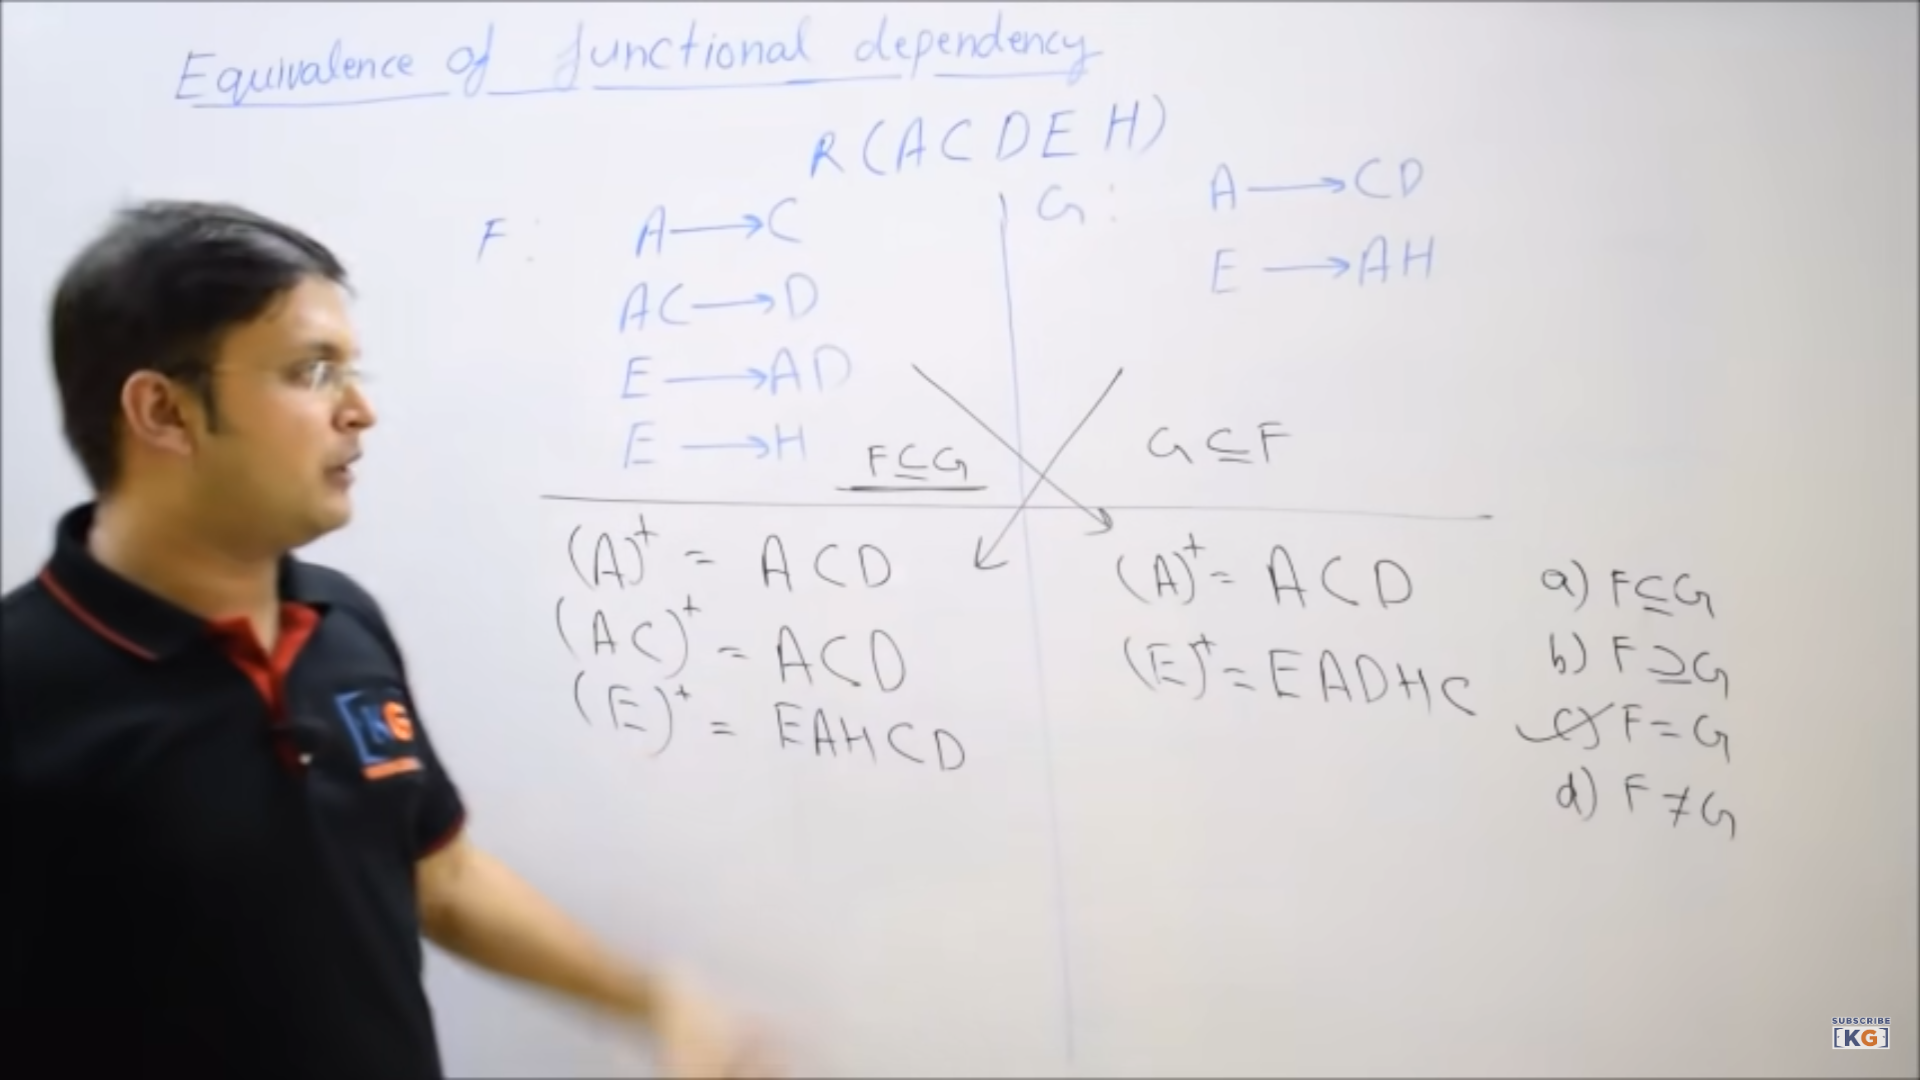 Equivalence of functional dependency
R(ACDEH)
F: A→C
AC→D
E→AD
E→H
G: A→CD
E→AH
F⊆G
G⊆F
(A)⁺ = ACD
(AC)⁺ = ACD
(E)⁺ = EAHCD
(A)⁺ = ACD
(E)⁺ = EADHC
a) F⊆G
b) F⊇G
c) F=G
d) F≠G
KG
SUBSCRIBE
[KG]